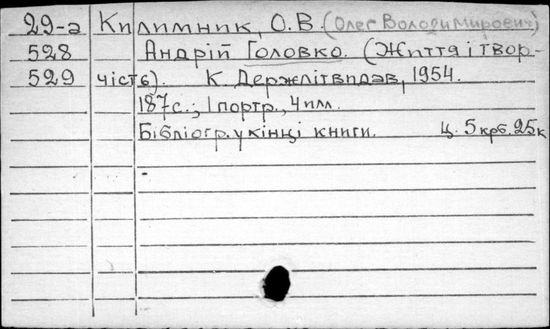 29-а Килимник, О.В. (Олег Володимирович)
528 Андрій Головко. (Життя і твор-
529 чість). К. Держлітвидав, 1954.
187с.; 1 портр., 4 илл.
Бібліогр. у кінці книги. Ц. 5 крб. 25к